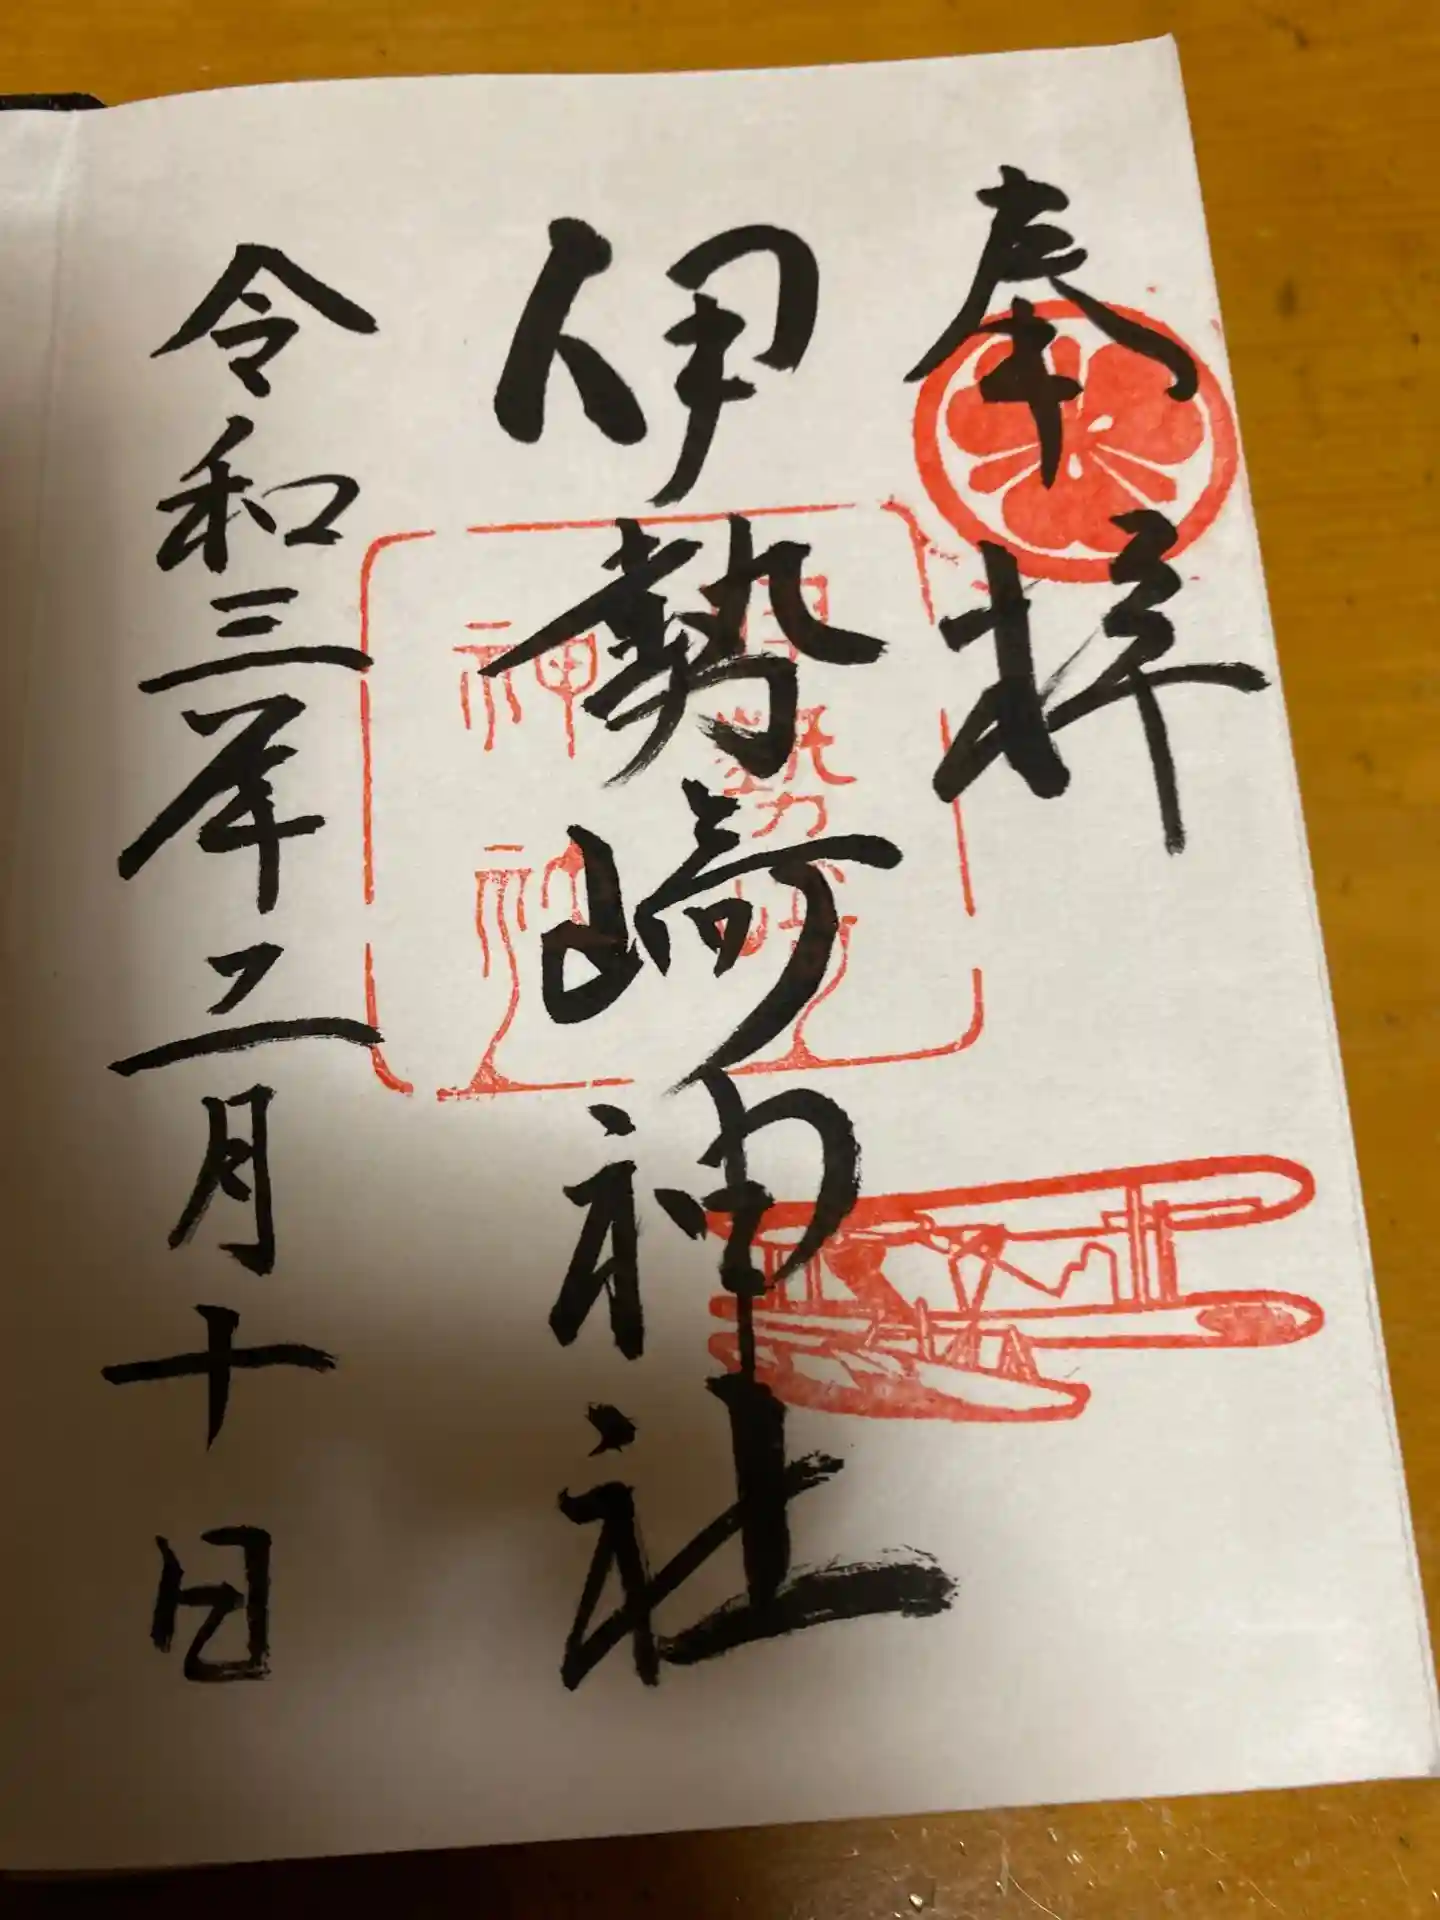 奉拝
伊勢崎神社
令和三年二月十日
伊勢崎
神社